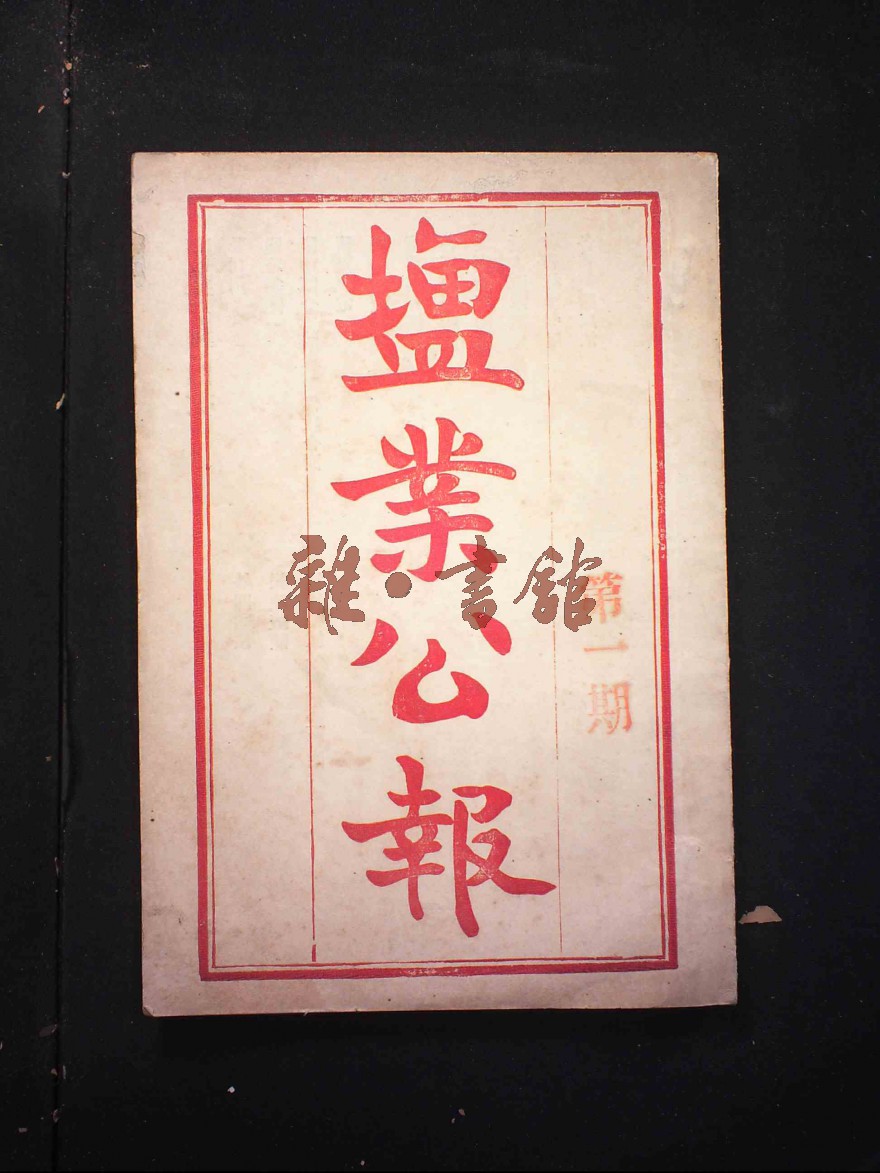 第一期
塩業公報
雜·書館